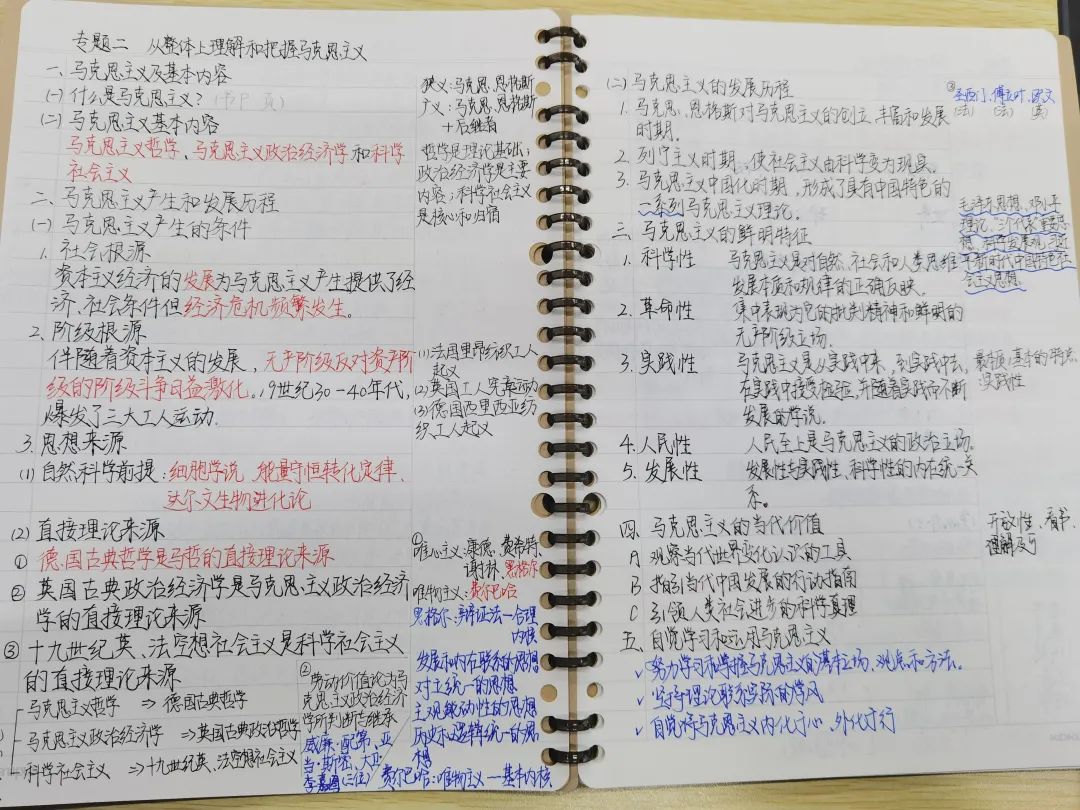 专题二 从整体上理解和把握马克思主义
一、马克思主义及基本内容
(一) 什么是马克思主义？(书P 页)
(二) 马克思主义基本内容
马克思主义哲学、马克思主义政治经济学和科学
社会主义
二、马克思主义产生和发展历程
(一) 马克思主义产生的条件
1. 社会根源
资本主义经济的发展为马克思主义产生提供了经
济、社会条件但经济危机频繁发生。
2. 阶级根源
伴随着资本主义的发展，无产阶级反对资产阶
级的阶级斗争日益激化，19世纪30-40年代，
爆发了三大工人运动.
3. 思想来源
(1) 自然科学前提：细胞学说、能量守恒转化定律、
达尔文生物进化论
(2) 直接理论来源
① 德国古典哲学是马哲的直接理论来源
② 英国古典政治经济学是马克思主义政治经济
学的直接理论来源
③ 十九世纪英、法空想社会主义是科学社会主义
的直接理论来源
马克思主义哲学 ⇒ 德国古典哲学
马克思主义政治经济学 ⇒英国古典政治哲学
科学社会主义 ⇒十九世纪英、法空想社会主义
狭义：马克思、恩格斯
广义：马克思、恩格斯
＋后继者
哲学是理论基础；
政治经济学是主要
内容；科学社会主义
是核心和归宿
(1)法国里昂纺织工人
起义
(2)英国工人宪章运动
(3)德国西里西亚纺
织工人起义
①
唯心主义：康德、费希特、
谢林、黑格尔
唯物主义：费尔巴哈
黑格尔：辩证法—合理
内核
发展和内在联系的思想
对立统一的思想
主观能动性的思想
历史和逻辑统一的思
想
费尔巴哈：唯物主义—基本内核
②
劳动价值论为马
克思主义政治经济
学所判断吉继承
威廉·配第、亚
当·斯密、大卫·
李嘉图(三位)
(二) 马克思主义的发展历程
1. 马克思、恩格斯对马克思主义的创立、丰富和发展
时期.
2. 列宁主义时期，使社会主义由科学变为现实。
3. 马克思主义中国化时期，形成了具有中国特色的
一系列马克思主义理论。
三、马克思主义的鲜明特征
1. 科学性 马克思主义是对自然、社会和人类思维
发展本质和规律的正确反映。
2. 革命性 集中表现为它的批判精神和鲜明的
无产阶级立场.
3. 实践性 马克思主义是从实践中来，到实践中去，
在实践中接受检验，并随着实践而不断
发展的学说.
4. 人民性 人民至上是马克思主义的政治立场.
5. 发展性 发展性与实践性、科学性的内在统一关
系。
四. 马克思主义的当代价值
A 观察当代世界变化认识的工具
B 指引当代中国发展的行动指南
C 引领人类社会进步的科学真理
五、自觉学习和运用马克思主义
✓努力学习和掌握马克思主义的基本立场、观点和方法。
✓坚持理论联系实际的学风
✓自觉将马克思主义内化于心、外化于行
③
圣西门、傅立叶、欧文
(法) (法) (英)
毛泽东思想、邓小平
理论、“三个代表”重要思
想、科学发展观、习近
平新时代中国特色社
会主义思想
最本质/基本的特点:
实践性
开放性、看书、
理解及可